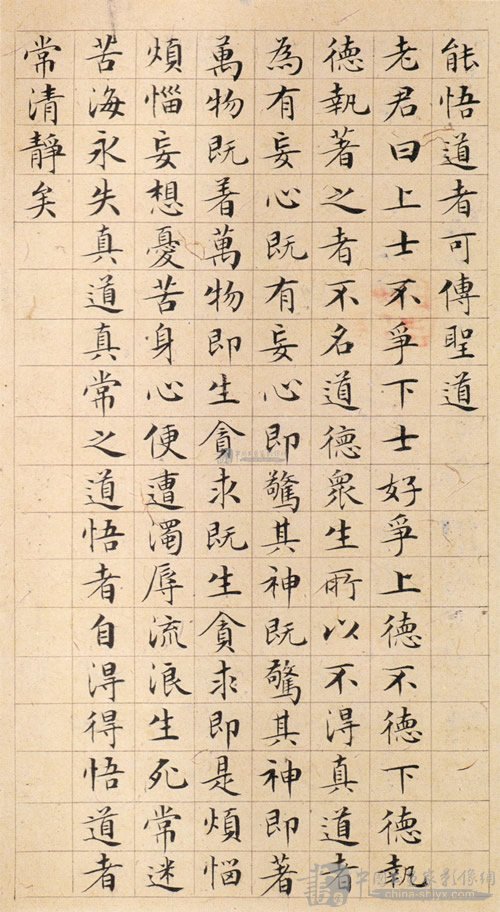 能悟道者可傳聖道
老君曰上士不爭下士好爭上德不德下德執
德執著之者不名道德衆生所以不淂真道者
為有妄心既有妄心即驚其神既驚其神即著
萬物既着萬物即生貪求既生貪求即是煩惱
煩惱妄想憂苦身心便遭濁辱流浪生死常迷
苦海永失真道真常之道悟者自淂得悟道者
常清靜矣